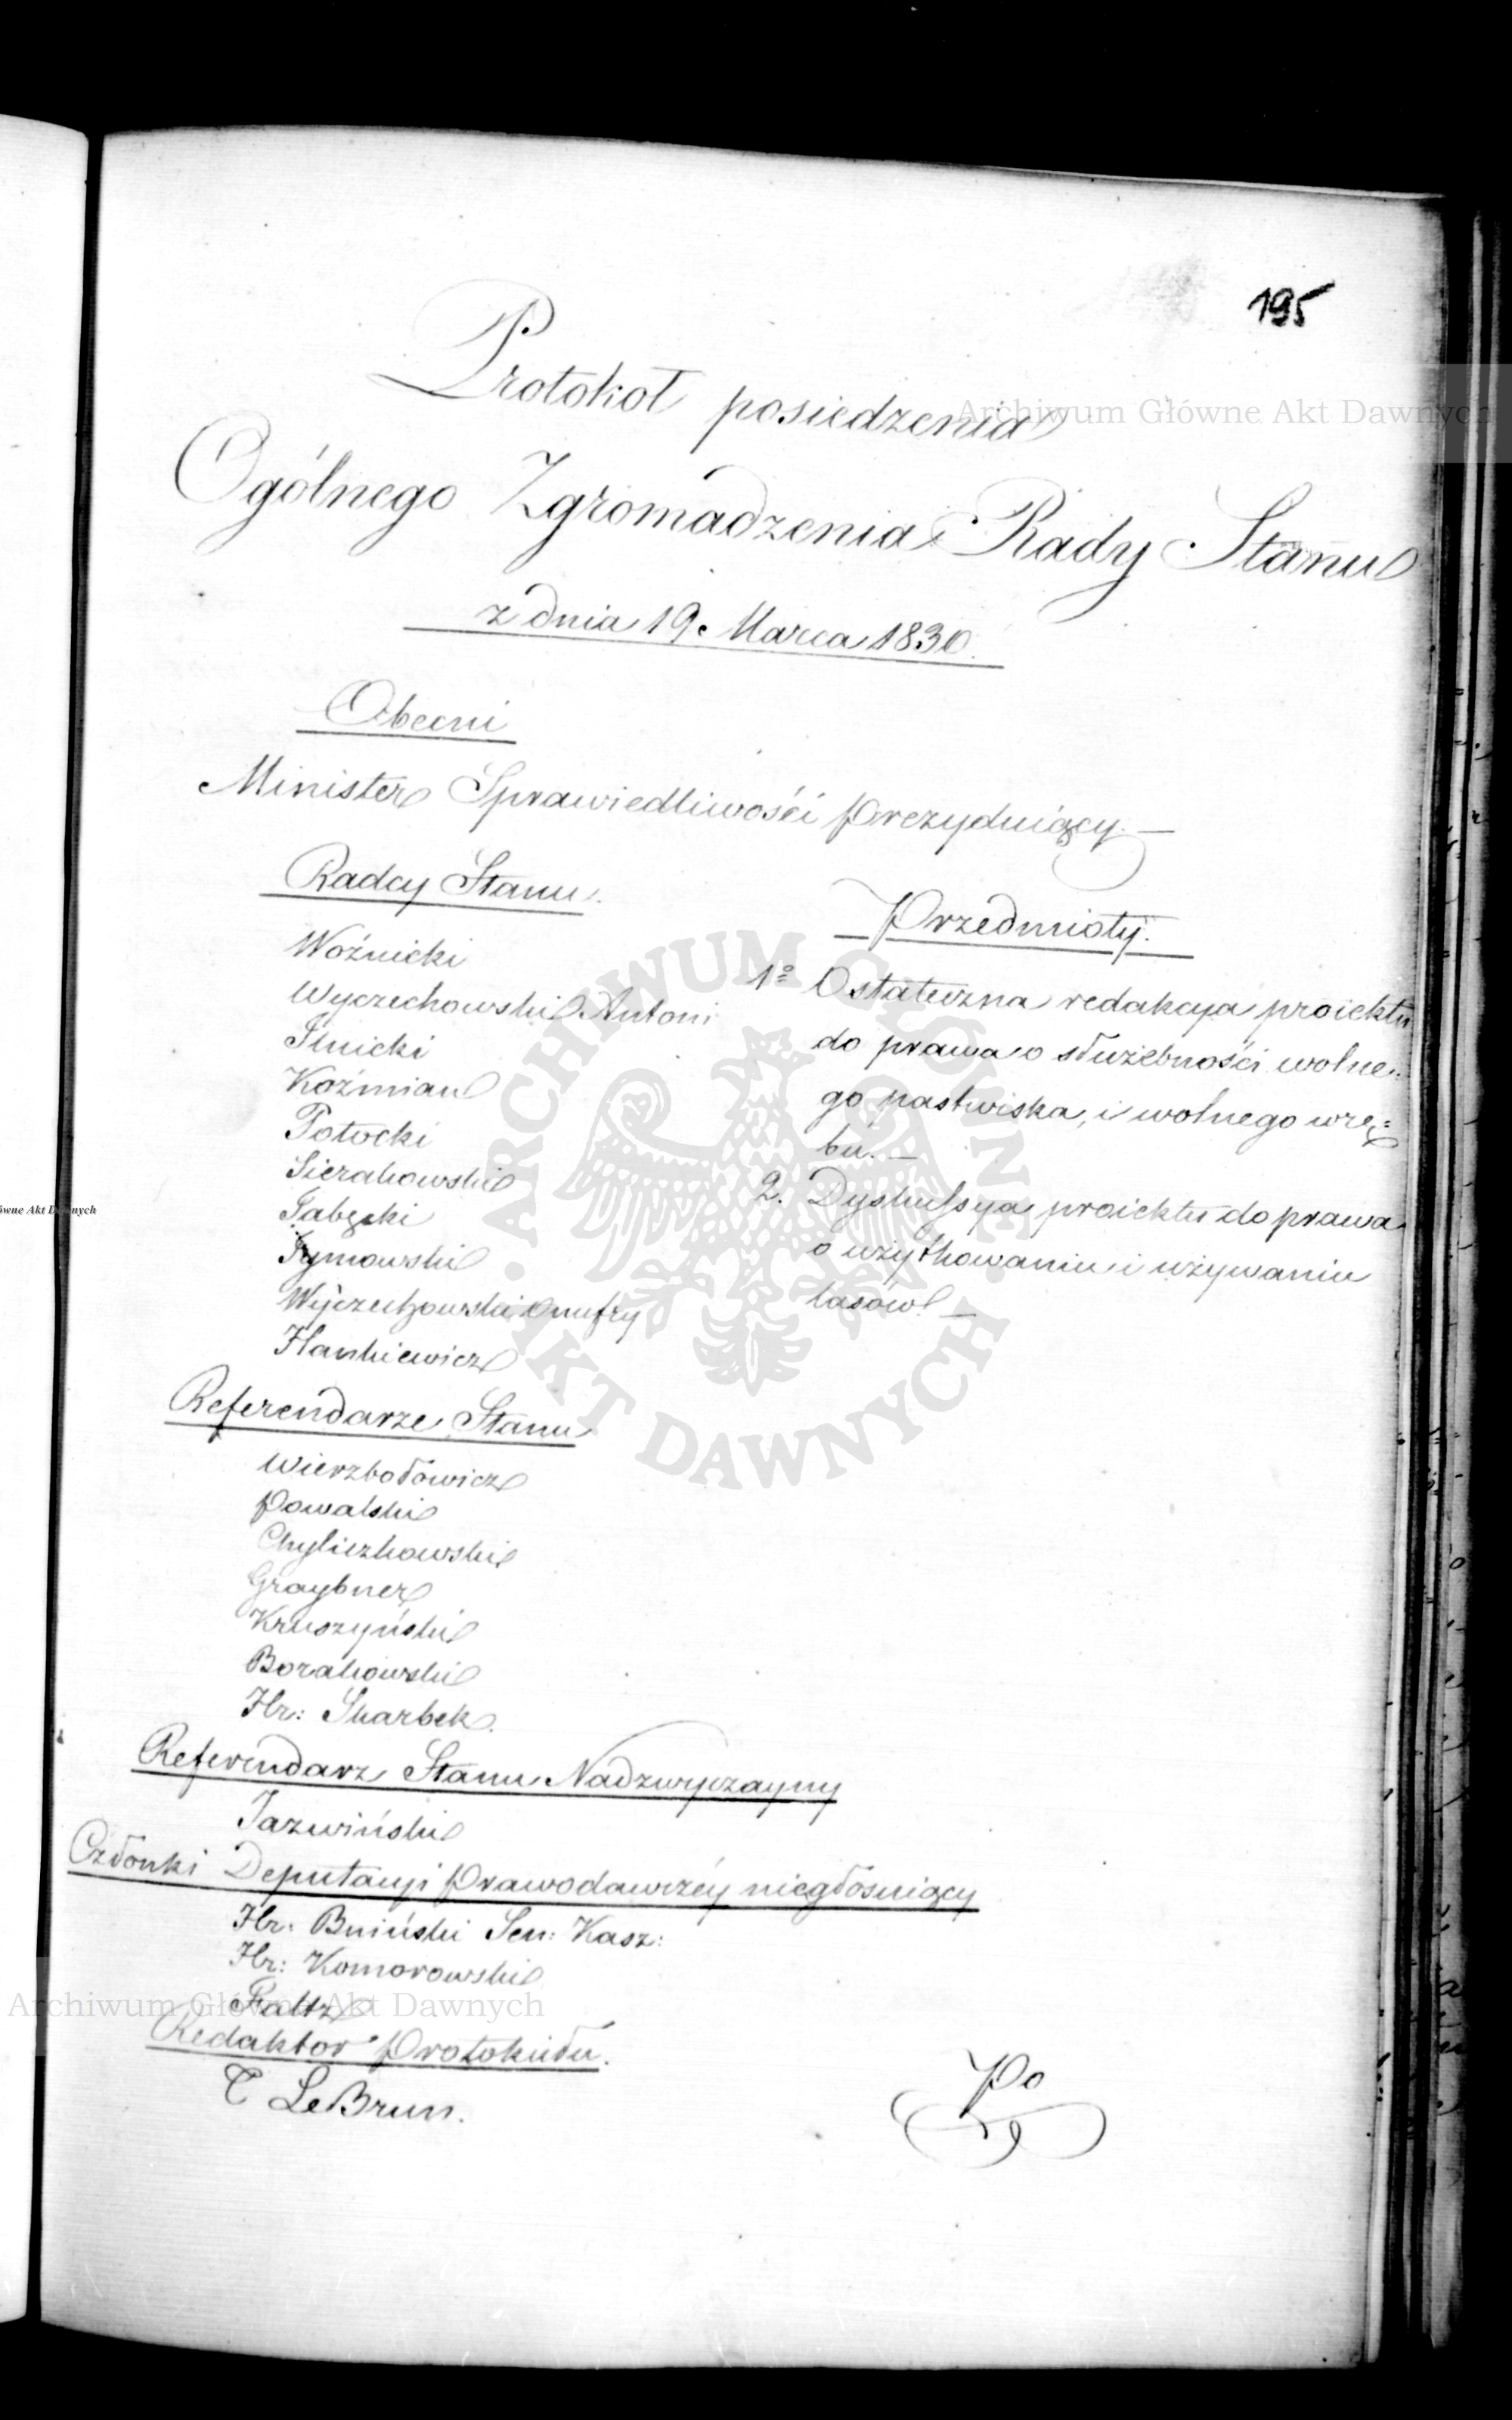 195
Protokoł posiedzenia
Ogólnego Zgromadzenia Rady Stanu
z dnia 19. Marca 1830.
Obecni
Minister Sprawiedliwości prezyduiący. —
Radcy Stanu.
Woźnicki
Wyczechowski Antoni
Ilnicki
Koźmian
Potocki
Sierakowski
Tabęcki
Tymowski
Wyczechowski Onufry
Hankiewicz
Referendarze Stanu
Wierzbołowicz
Powalski
Chyliczkowski
Graybner
Kruszyński
Borakowski
Hr: Skarbek.
Referendarz Stanu Nadzwyczayny
Jazwiński
Członki Deputacyi prawodawczéy niegłosuiący
Hr: Bniński Sen: Kasz:
Hr: Komorowski
Faltz
Redaktor Protokułu.
T LeBrun.
Przedmioty.
1º Ostateczna redakcya proiektu
do prawa o służebności wolne=
go pastwiska, i wolnego wrę=
bu. —
2. Dyskussya proiektu do prawa
o użytkowaniu i używaniu
lasów. —
Po
Archiwum Główne Akt Dawnych
ówne Akt Dawnych
ARCHIWUM GŁÓWNE
AKT DAWNYCH
Archiwum Główne Akt Dawnych